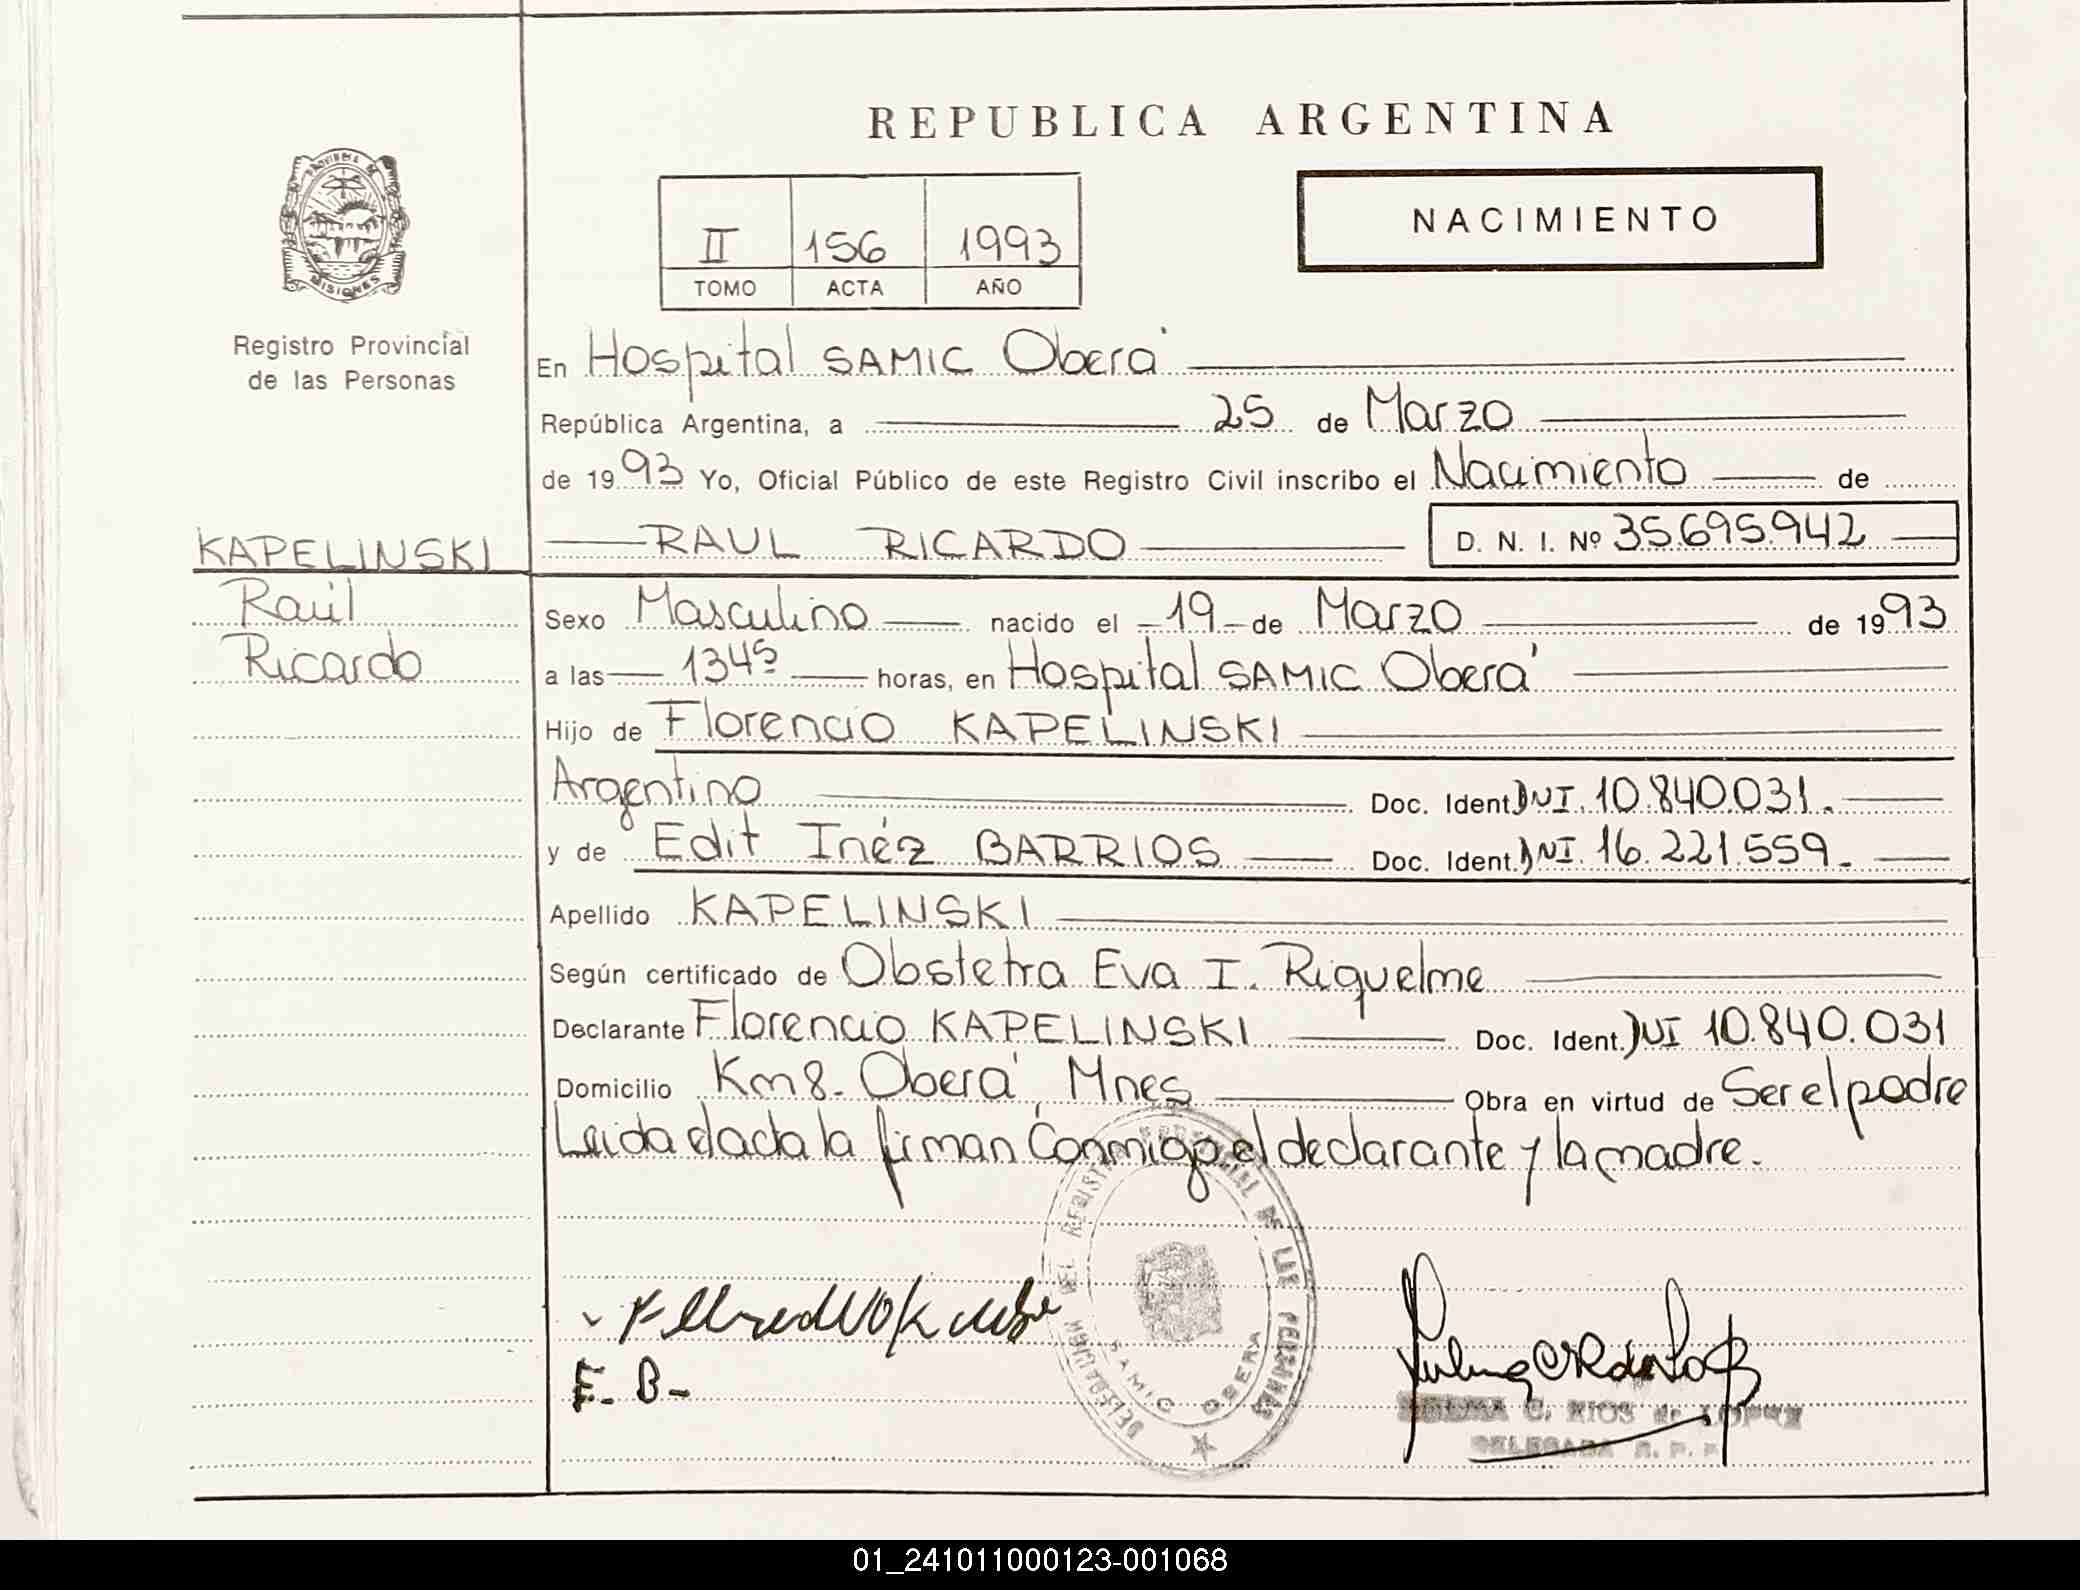 REPUBLICA ARGENTINA
PROVINCIA DE
MISIONES
Registro Provincial
de las Personas
II 156 1993
TOMO ACTA AÑO
NACIMIENTO
En Hospital SAMIC Oberá
República Argentina, a 25 de Marzo
de 1993 Yo, Oficial Público de este Registro Civil inscribo el Nacimiento de
KAPELINSKI
Raúl
Ricardo
RAUL RICARDO D. N. I. Nº 35.695.942
Sexo Masculino nacido el 19 de Marzo de 1993
a las 1345 horas, en Hospital SAMIC Oberá
Hijo de Florencio KAPELINSKI
Argentino Doc. Ident. DNI. 10.840.031.
y de Edit Inéz BARRIOS Doc. Ident. DNI. 16.221.559.
Apellido KAPELINSKI
Según certificado de Obstetra Eva I. Riquelme
Declarante Florencio KAPELINSKI Doc. Ident. DNI 10.840.031
Domicilio Km 8. Oberá, Mnes Obra en virtud de Ser el padre
Leida el acta la firman Conmigo el declarante y la madre.
DELEGACION DEL REGISTRO PROVINCIAL DE LAS PERSONAS
SAMIC OBERA
E. B.
C. RIOS de LOPEZ
DELEGADA R. P. P.
01_241011000123-001068